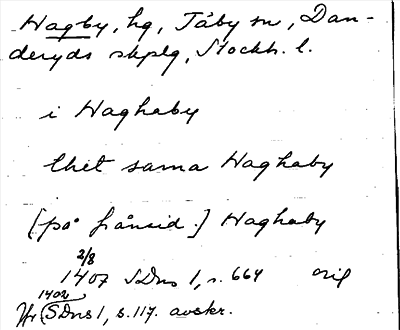 Hagby, hg, Täby sn, Dan-
deryds skplg, Stockh. l.
i Haghaby
thet sama Haghaby
[på frånsid.] Haghaby
2/8
1407 SDns 1, s. 664 orig
1402
Jfr (SDns 1, s. 117. avskr.